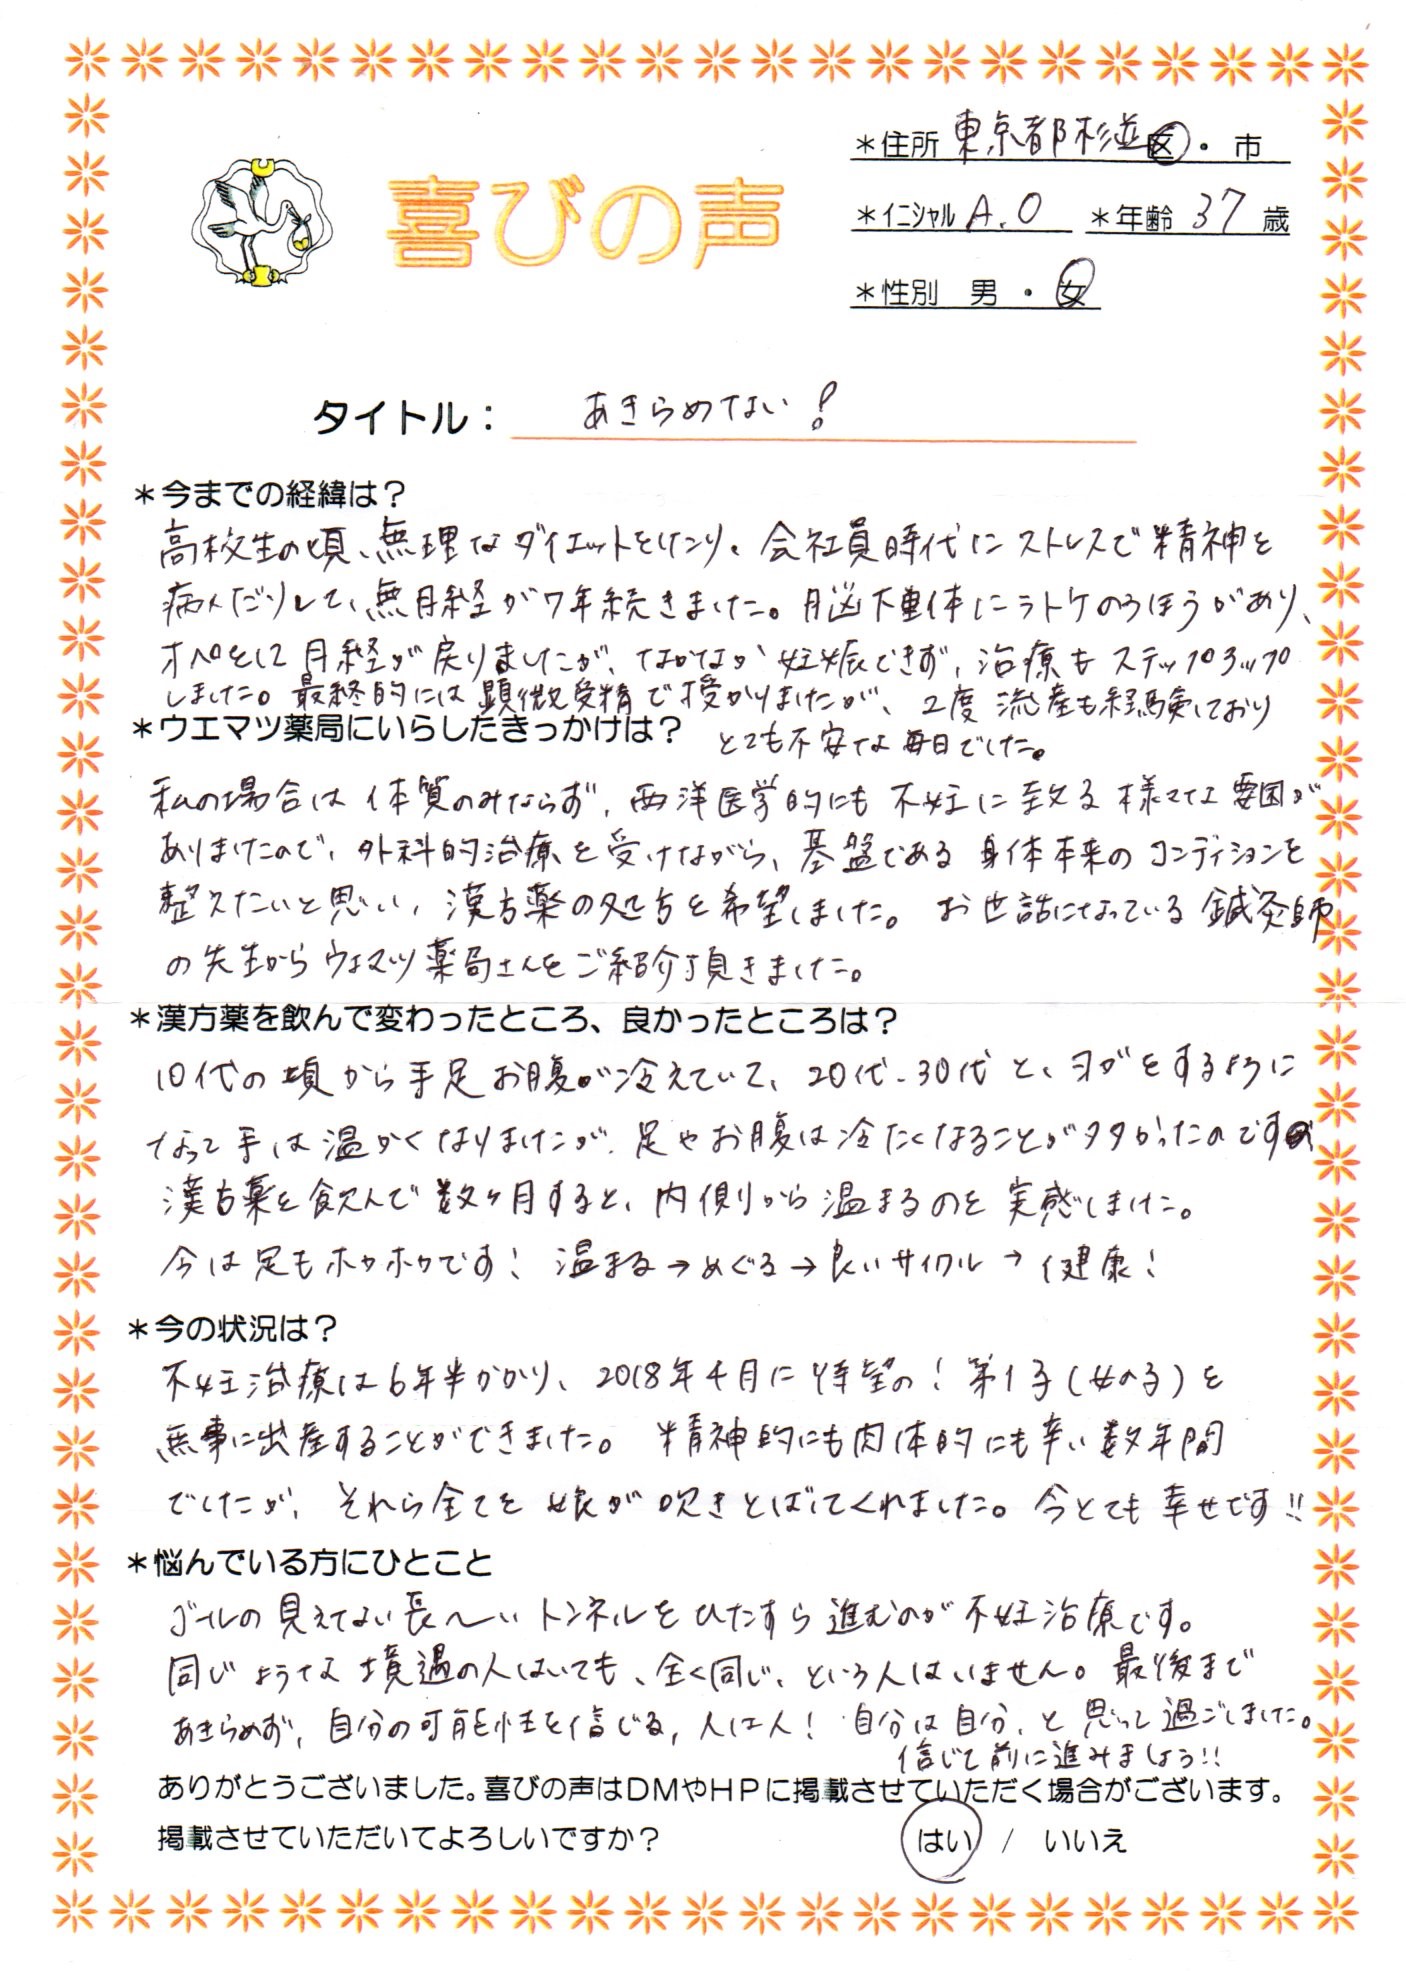 喜びの声
＊住所 東京都杉並区・市
＊イニシャル A.O ＊年齢 37 歳
＊性別 男・女
タイトル： あきらめない！
＊今までの経緯は？
高校生の頃、無理なダイエットをしたり、会社員時代にストレスで精神を
病んだりして、無月経が7年続きました。脳下垂体にラトケのうほうがあり、
オペをして月経が戻りましたが、なかなか妊娠できず、治療もステップアップ
しました。最終的には顕微受精で授かりましたが、2度流産も経験しており
とても不安な毎日でした。
＊ウエマツ薬局にいらしたきっかけは？
私の場合は体質のみならず、西洋医学的にも不妊に至る様々な要因が
ありましたので、外科的治療を受けながら、基盤である身体本来のコンディションを
整えたいと思い、漢方薬の処方を希望しました。お世話になっている鍼灸師
の先生からウエマツ薬局さんをご紹介頂きました。
＊漢方薬を飲んで変わったところ、良かったところは？
10代の頃から手足お腹が冷えていて、20代、30代と、ヨガをするように
なって手は温かくなりましたが、足やお腹は冷たくなることが多かったのですが
漢方薬を飲んで数ヶ月すると、内側から温まるのを実感しました。
今は足もホカホカです！温まる→めぐる→良いサイクル→健康！
＊今の状況は？
不妊治療は6年半かかり、2018年4月に待望の！第1子(女の子)を
無事に出産することができました。精神的にも肉体的にも辛い数年間
でしたが、それら全てを娘が吹きとばしてくれました。今とても幸せです!!
＊悩んでいる方にひとこと
ゴールの見えない長〜いトンネルをひたすら進むのが不妊治療です。
同じような境遇の人はいても、全く同じ、という人はいません。最後まで
あきらめず、自分の可能性を信じる、人は人！自分は自分、と思って過ごしました。
信じて前に進みましょう!!
ありがとうございました。喜びの声はＤＭやＨＰに掲載させていただく場合がございます。
掲載させていただいてよろしいですか？ はい / いいえ